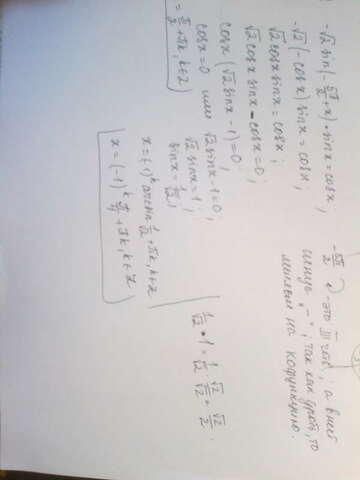 -√2 sin(-5π/2 + x) · sinx = cosx;
-√2 (-cosx) sinx = cosx;
√2 cosx sinx = cosx;
√2 cosx sinx - cosx = 0;
cosx (√2 sinx - 1) = 0;
cosx = 0 или √2 sinx - 1 = 0;
= π/2 + πk, k∈Z
√2 sinx = 1;
sinx = 1/√2;
x = (-1)^k arcsin 1/√2 + πk, k∈Z
x = (-1)^k π/4 + πk, k∈Z
-5π/2
- это III четв; а в ней
"-"; так как дробь, то
меняем на кофункцию.
1/√2 · 1 = 1/√2 · √2/√2 = √2/2.